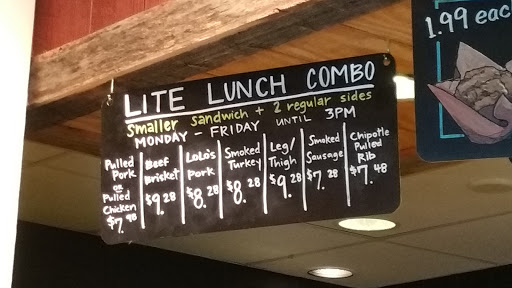 LITE LUNCH COMBO
Smaller sandwich + 2 regular sides
MONDAY - FRIDAY UNTIL 3PM
Pulled
Pork
or
Pulled
Chicken
$7.98
Beef
Brisket
$9.28
LoLo's
Pork
$8.28
Smoked
Turkey
$8.28
Leg/
Thigh
$9.28
Smoked
Sausage
$7.28
Chipotle
Pulled
Rib
$7.48
1.99 eac